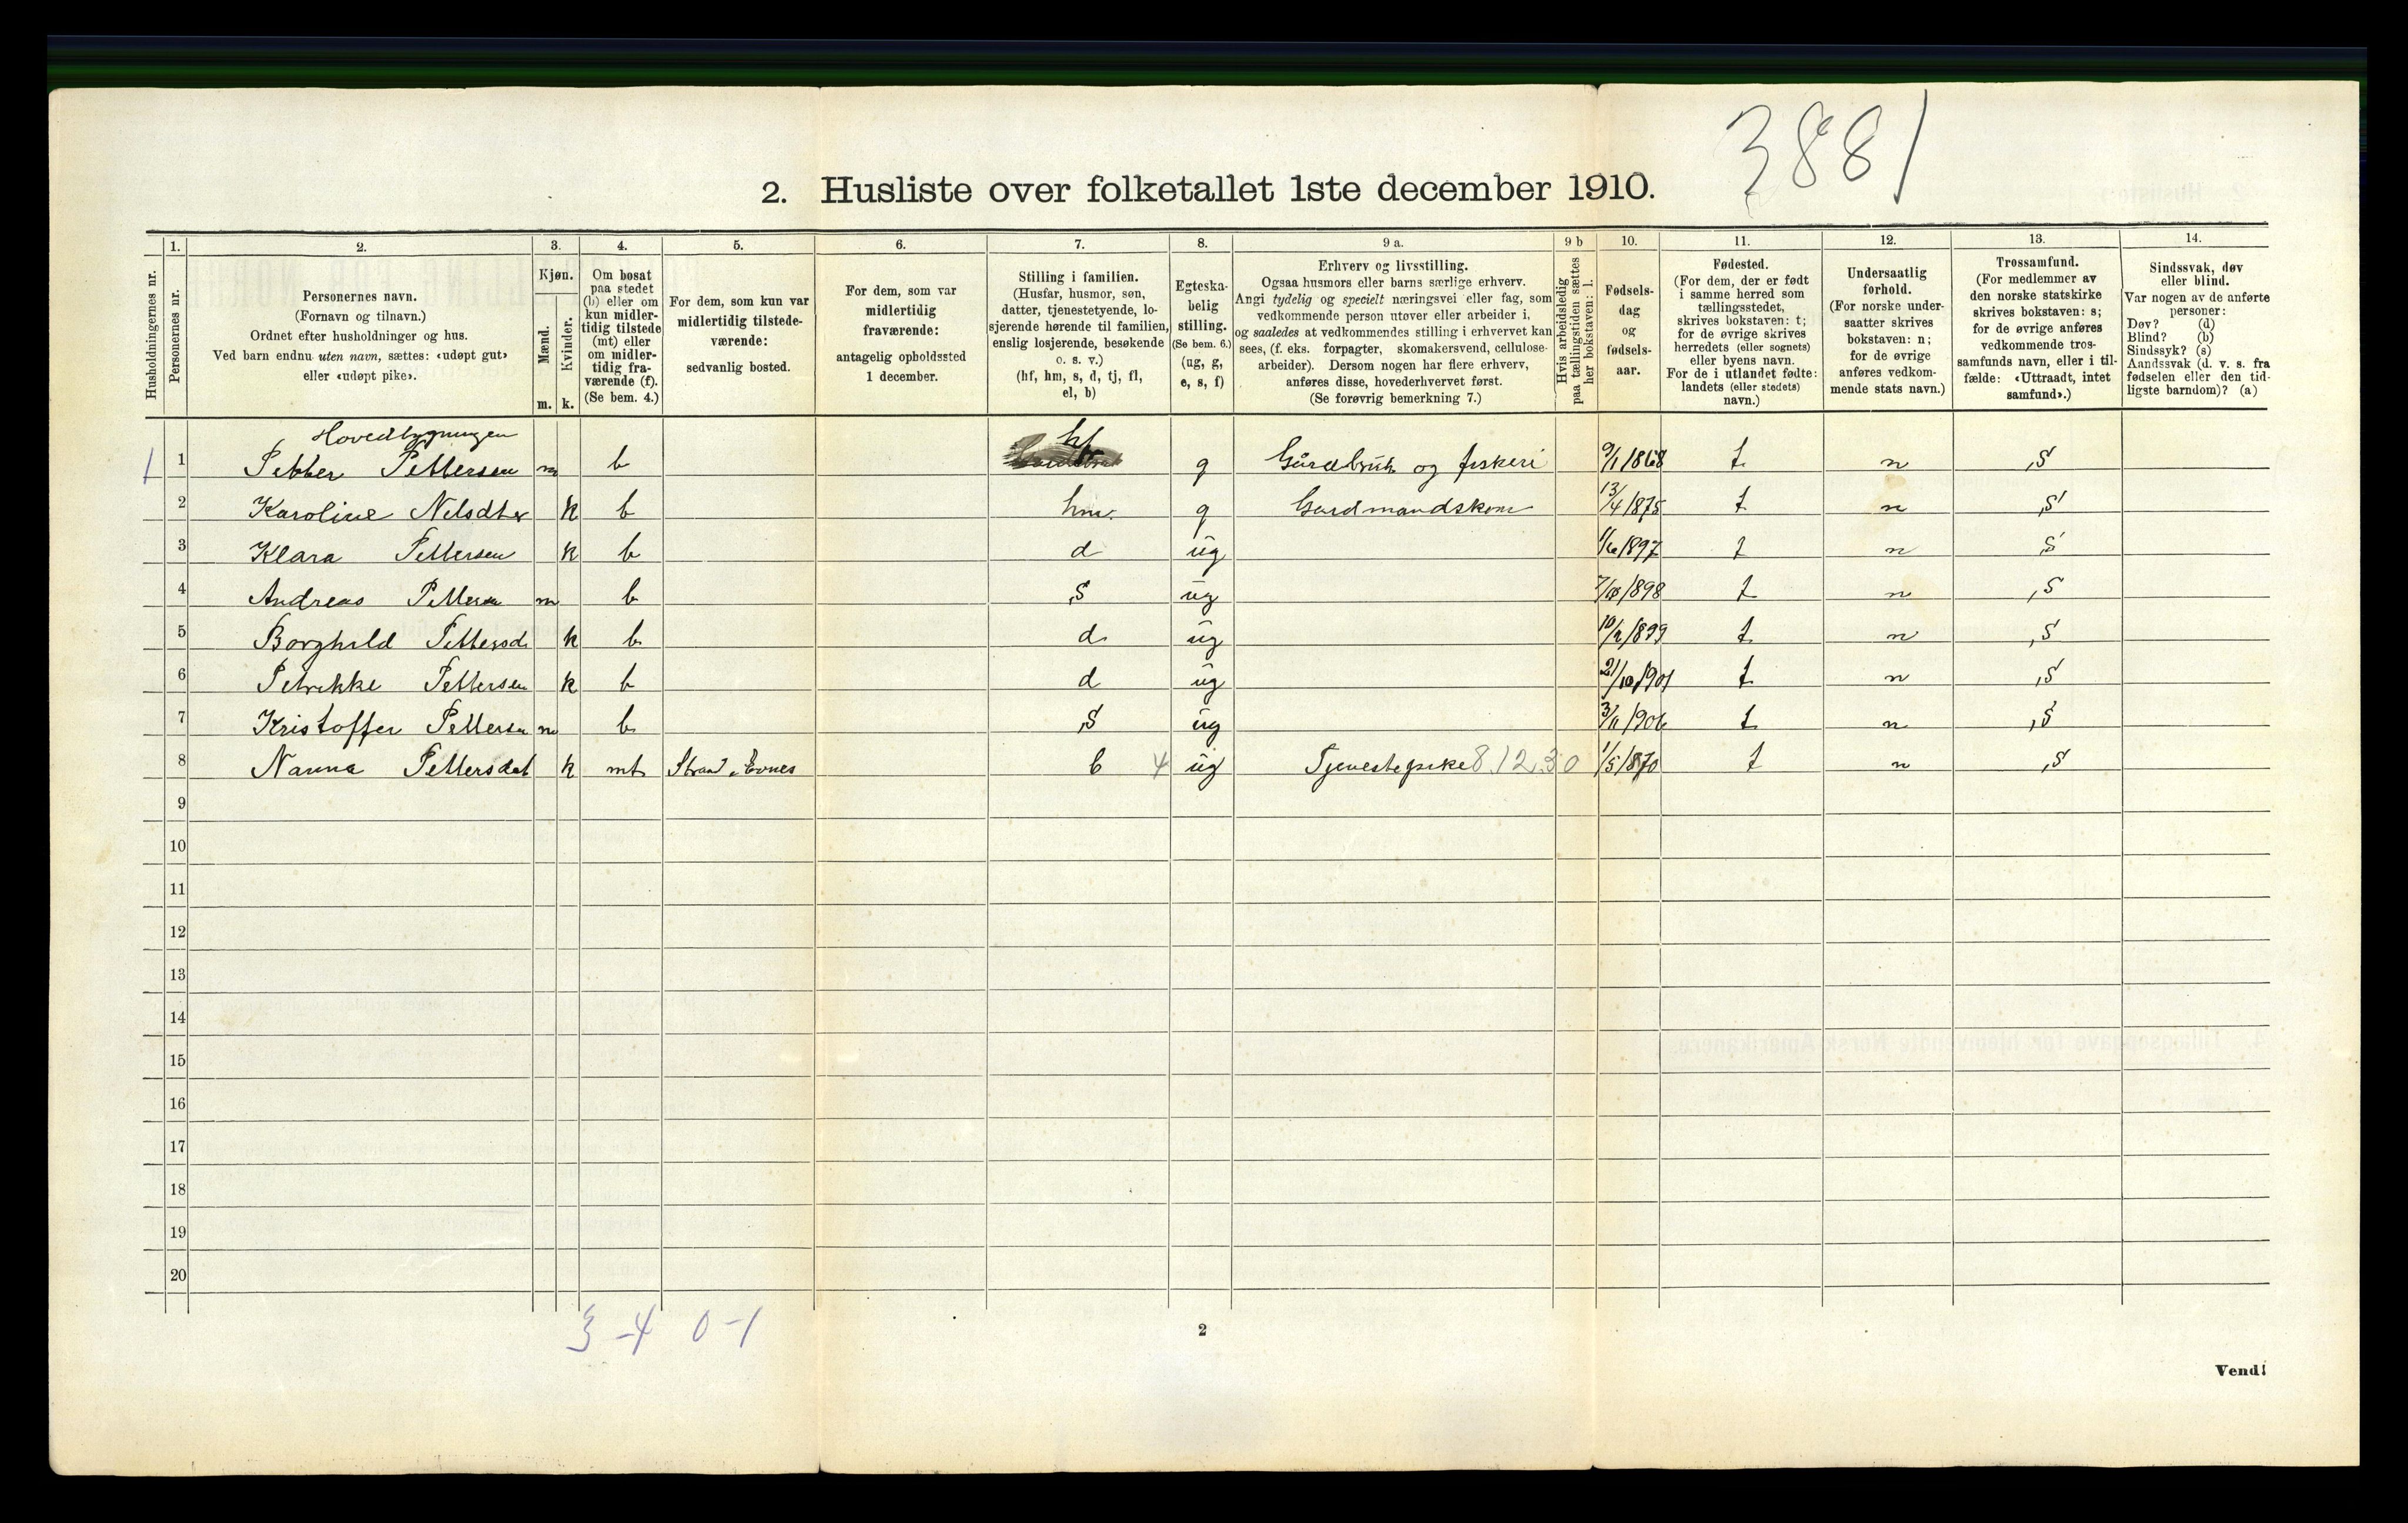 3881
2. Husliste over folketallet 1ste december 1910.
Husholdningernes nr.
1.
Personernes nr.
2.
Personernes navn.
(Fornavn og tilnavn.)
Ordnet efter husholdninger og hus.
Ved barn endnu uten navn, sættes: «udøpt gut»
eller «udøpt pike».
3.
Kjøn.
Mænd.
m.
Kvinder.
k.
4.
Om bosat
paa stedet
(b) eller om
kun midler-
tidig tilstede
(mt) eller
om midler-
tidig fra-
værende (f).
(Se bem. 4.)
5.
For dem, som kun var
midlertidig tilstede-
værende:
sedvanlig bosted.
6.
For dem, som var
midlertidig
fraværende:
antagelig opholdssted
1 december.
7.
Stilling i familien.
(Husfar, husmor, søn,
datter, tjenestetyende, lo-
sjerende hørende til familien,
enslig losjerende, besøkende
o. s. v.)
(hf, hm, s, d, tj, fl,
el, b)
8.
Egteska-
belig
stilling.
(Se bem. 6.)
(ug, g,
e, s, f)
9 a.
Erhverv og livsstilling.
Ogsaa husmors eller barns særlige erhverv.
Angi tydelig og specielt næringsvei eller fag, som
vedkommende person utøver eller arbeider i,
og saaledes at vedkommendes stilling i erhvervet kan
sees, (f. eks. forpagter, skomakersvend, cellulose-
arbeider). Dersom nogen har flere erhverv,
anføres disse, hovederhvervet først.
(Se forøvrig bemerkning 7.)
9 b
Hvis arbeidsledig
paa tællingstiden sættes
her bokstaven: l.
10.
Fødsels-
dag
og
fødsels-
aar.
11.
Fødested.
(For dem, der er født
i samme herred som
tællingsstedet,
skrives bokstaven: t;
for de øvrige skrives
herredets (eller sognets)
eller byens navn.
For de i utlandet fødte:
landets (eller stedets)
navn.)
12.
Undersaatlig
forhold.
(For norske under-
saatter skrives
bokstaven: n;
for de øvrige
anføres vedkom-
mende stats navn.)
13.
Trossamfund.
(For medlemmer av
den norske statskirke
skrives bokstaven: s;
for de øvrige anføres
vedkommende tros-
samfunds navn, eller i til-
fælde: «Uttraadt, intet
samfund».)
14.
Sindssvak, døv
eller blind.
Var nogen av de anførte
personer:
Døv? (d)
Blind? (b)
Sindssyk? (s)
Aandssvak (d. v. s. fra
fødselen eller den tid-
ligste barndom)? (a)
Hovedbygningen
1 1 Petter Pettersen m b hf g Gårdbruk og fiskeri 9/1 1868 t n s
2 Karoline Nilsdter k b hm. g Gardmandskone 13/4 1875 t n s
3 Klara Pettersen k b d ug 1897 t n s
4 Andreas Pettersen m b s ug 1898 t n s
5 Borghild Pettersd k b d ug 1899 t n s
6 Petrikke Pettersen k b d ug 21/10 1901 t n s
7 Kristoffer Pettersen m b s ug 3/11 1906 t n s
8 Nanna Pettersdat k mt Strand i Evnes b 4 ug Tjenestepike 8.12.30 1/5 1870 t n s
9
10
11
12
13
14
15
16
17
18
19
20
3-4 0-1
2
Vend!